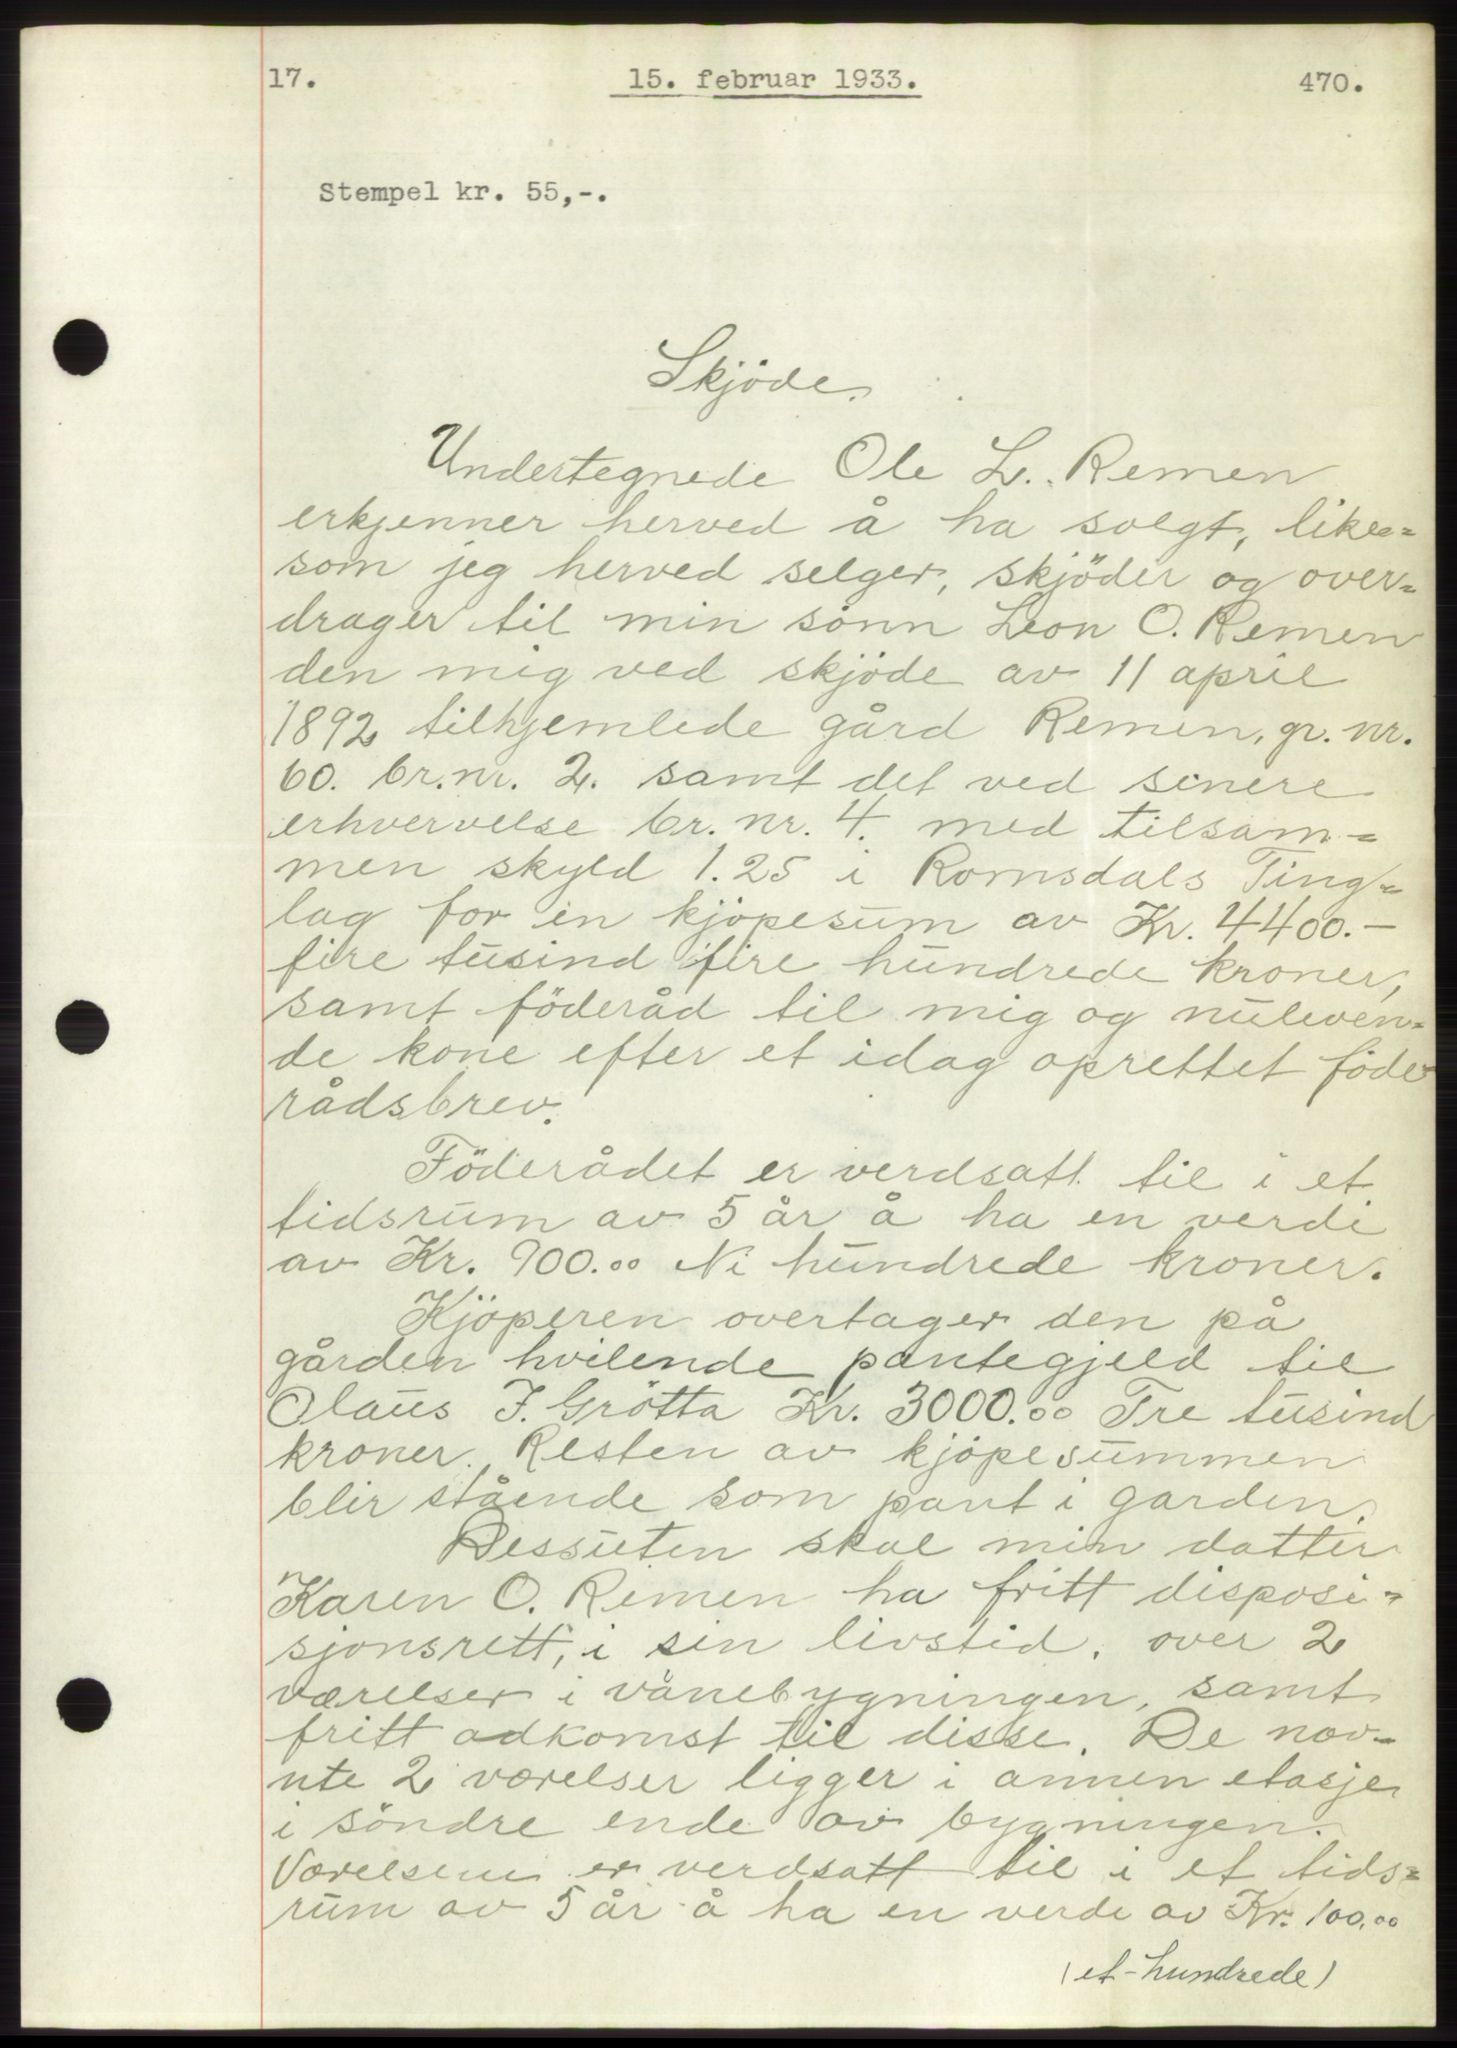 17. 15. februar 1933. 470.
Stempel kr. 55,-.
Skjöde.
Undertegnede Ole L. Remen
erkjenner herved å ha solgt, like=
som jeg herved selger, skjöder og over=
drager til min sönn Leon O. Remen
den mig ved skjöde av 11 april
1892 tilhjemlede gård Remen, gr. nr.
60. br. nr. 2. samt det ved senere
erhvervelse br. nr. 4. med tilsam=
men skyld 1.25 i Romsdals Ting=
lag for en kjöpesum av Kr. 4400.-
fire tusind fire hundrede kroner,
samt föderåd til mig og nuleven=
de kone efter et idag oprettet föde
rådsbrev.
Föderådet er verdsatt til i et
tidsrum av 5 år å ha en verdi
av Kr. 900.00 Ni hundrede kroner.
Kjöperen overtager den på
gården hvilende pantegjeld til
Olaus J. Grötta Kr. 3000.00 Tre tusind
kroner. Resten av kjöpesummen
blir stående som pant i garden.
Dessuten skal min datter
Karen O. Remen ha fritt disposi=
sjonsrett, i sin livstid, over 2
værelser i vånebygningen, samt
fritt adkomst til disse. De næv=
nte 2 værelser ligger i annen etasje
i söndre ende av bygningen.
Værelsene er verdsatt til i et tids=
rum av 5 år å ha en verde av Kr. 100.00
(et-hundrede)